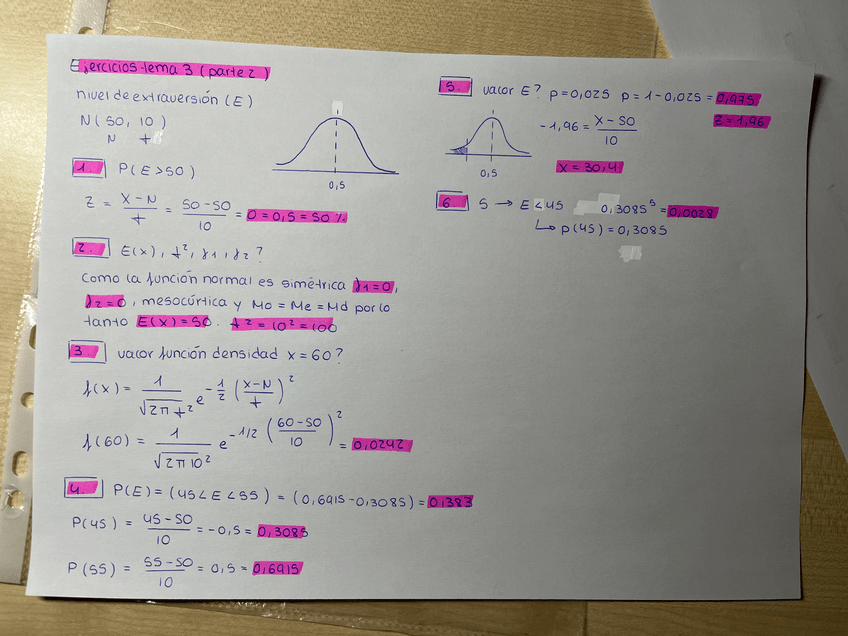 Ejercicios tema 3 (parte 2)
nivel de extraversión (E)
N(50, 10)
N σ
1. P(E>50)
Z = X-N / σ = 50-50 / 10 = 0 = 0,5 = 50%
0,5
2. E(x), σ², γ1, γ2?
Como la función normal es simétrica γ1=0,
γ2=0, mesocúrtica y Mo = Me = Md por lo
tanto E(x)=50. σ²=10²=100
3. valor función densidad x = 60?
f(x) = 1 / √2π σ² e^-1/2 (x-N / σ)²
f(60) = 1 / √2π 10² e^-1/2 (60-50 / 10)² = 0,0242
4. P(E) = (45<E<55) = (0,6915-0,3085) = 0,383
P(45) = 45-50 / 10 = -0,5 = 0,3085
P(55) = 55-50 / 10 = 0,5 = 0,6915
5. valor E? p=0,025 p=1-0,025=0,975
-1,96 = X-50 / 10 Z=1,96
0,5
X=30,4
6. 5 → E<45 0,3085⁵=0,0028
↳ p(45)=0,3085